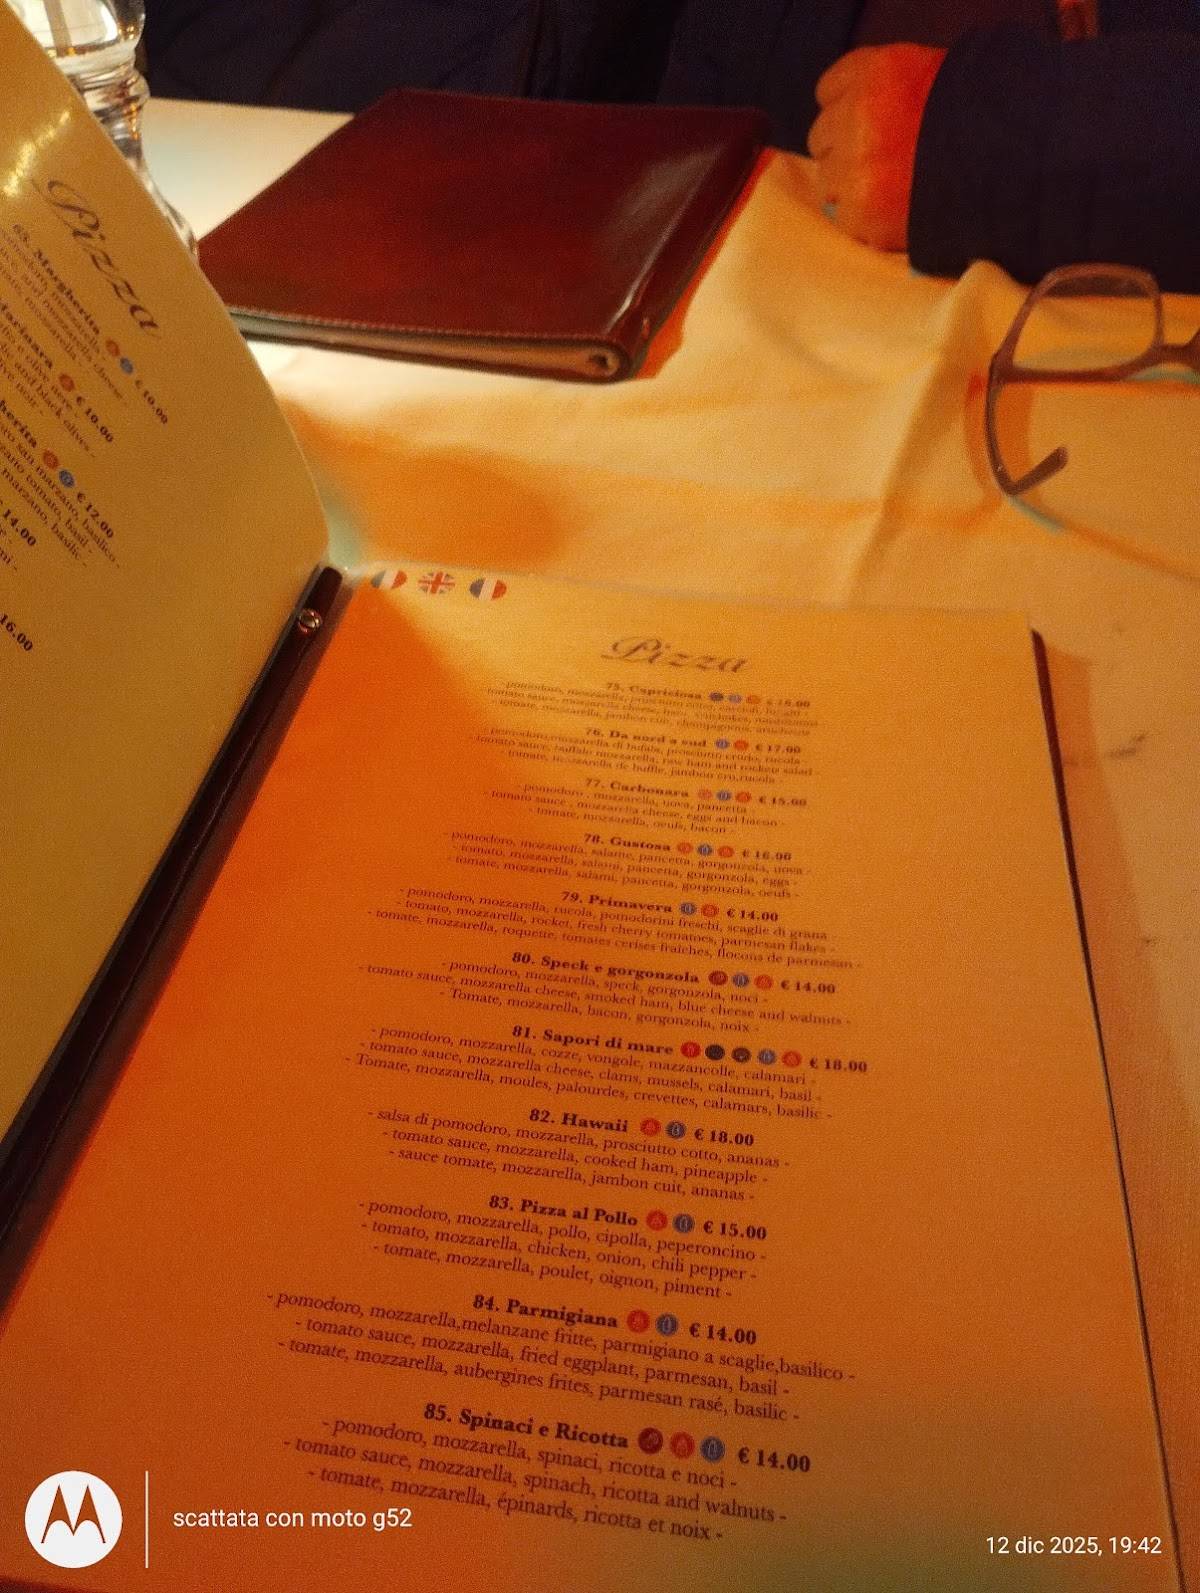 Pizza
63. Margherita € 10.00
Marinara € 10.00
and black olives -
€ 12.00
san marzano, basilico -
tomato, basil -
marzano, basilic -
14.00
16.00
Pizza
75. Capricciosa € 15.00
76. Da nord a sud € 17.00
- pomodoro, mozzarella di bufala, prosciutto crudo, rucola -
- tomato sauce, buffalo mozzarella, raw ham and rocket salad -
- tomate, mozzarella de buffle, jambon cru, rucola -
77. Carbonara € 15.00
- pomodoro, mozzarella, uova, pancetta -
- tomato sauce, mozzarella cheese, eggs and bacon -
- tomate, mozzarella, oeufs, bacon -
78. Gustosa € 16.00
- pomodoro, mozzarella, salame, pancetta, gorgonzola, uova -
- tomato, mozzarella, salami, pancetta, gorgonzola, eggs -
- tomate, mozzarella, salami, pancetta, gorgonzola, oeufs -
79. Primavera € 14.00
- pomodoro, mozzarella, rucola, pomodorini freschi, scaglie di grana -
- tomato, mozzarella, rocket, fresh cherry tomatoes, parmesan flakes -
- tomate, mozzarella, roquette, tomates cerises fraîches, flocons de parmesan -
80. Speck e gorgonzola € 14.00
- pomodoro, mozzarella, speck, gorgonzola, noci -
- tomato sauce, mozzarella cheese, smoked ham, blue cheese and walnuts -
- Tomate, mozzarella, bacon, gorgonzola, noix -
81. Sapori di mare € 18.00
- pomodoro, mozzarella, cozze, vongole, mazzancolle, calamari -
- tomato sauce, mozzarella cheese, clams, mussels, calamari, basil -
- Tomate, mozzarella, moules, palourdes, crevettes, calamars, basilic -
82. Hawaii € 18.00
- salsa di pomodoro, mozzarella, prosciutto cotto, ananas -
- tomato sauce, mozzarella, cooked ham, pineapple -
- sauce tomate, mozzarella, jambon cuit, ananas -
83. Pizza al Pollo € 15.00
- pomodoro, mozzarella, pollo, cipolla, peperoncino -
- tomato, mozzarella, chicken, onion, chili pepper -
- tomate, mozzarella, poulet, oignon, piment -
84. Parmigiana € 14.00
- pomodoro, mozzarella,melanzane fritte, parmigiano a scaglie,basilico -
- tomato sauce, mozzarella, fried eggplant, parmesan, basil -
- tomate, mozzarella, aubergines frites, parmesan rasé, basilic -
85. Spinaci e Ricotta € 14.00
- pomodoro, mozzarella, spinaci, ricotta e noci -
- tomato sauce, mozzarella, spinach, ricotta and walnuts -
- tomate, mozzarella, épinards, ricotta et noix -
scattata con moto g52
12 dic 2025, 19:42